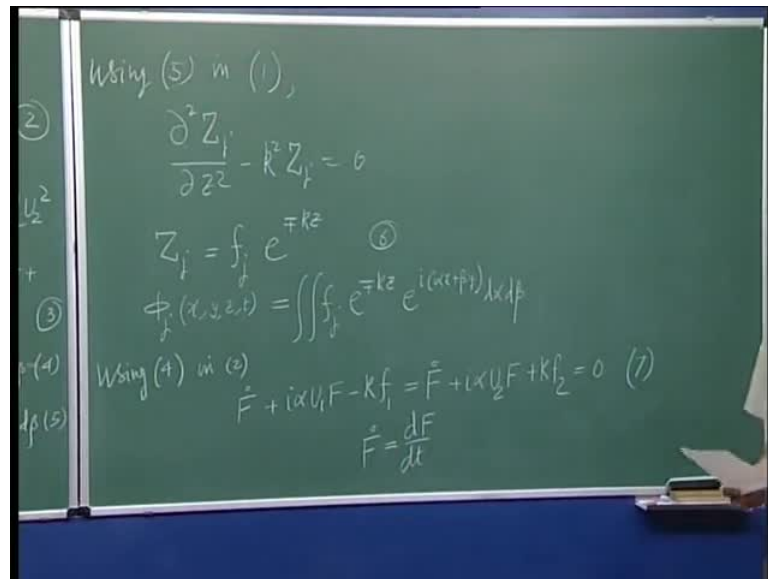 ②
U₂²
+
③
(4)
dβ(5)
Using (5) in (1),
∂²Z_j/∂z² - k²Z_j = 0
Z_j = f_j e^{∓kz} ⑥
ϕ_j(x,y,z,t) = ∬ f_j e^{∓kz} e^{i(αx+βy)} dαdβ
Using (4) in (2)
F° + iαU₁F - kf₁ = F° + iαU₂F + kf₂ = 0 (7)
F° = dF/dt